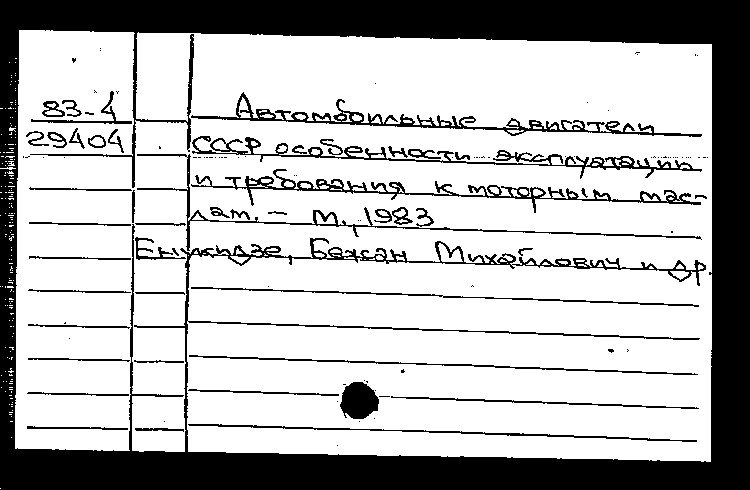 83-4 Автомобильные двигатели
29404 СССР, особенности эксплуатации
и требования к моторным мас-
лам. – М., 1983
Енукидзе, Бежан Михайлович и др.